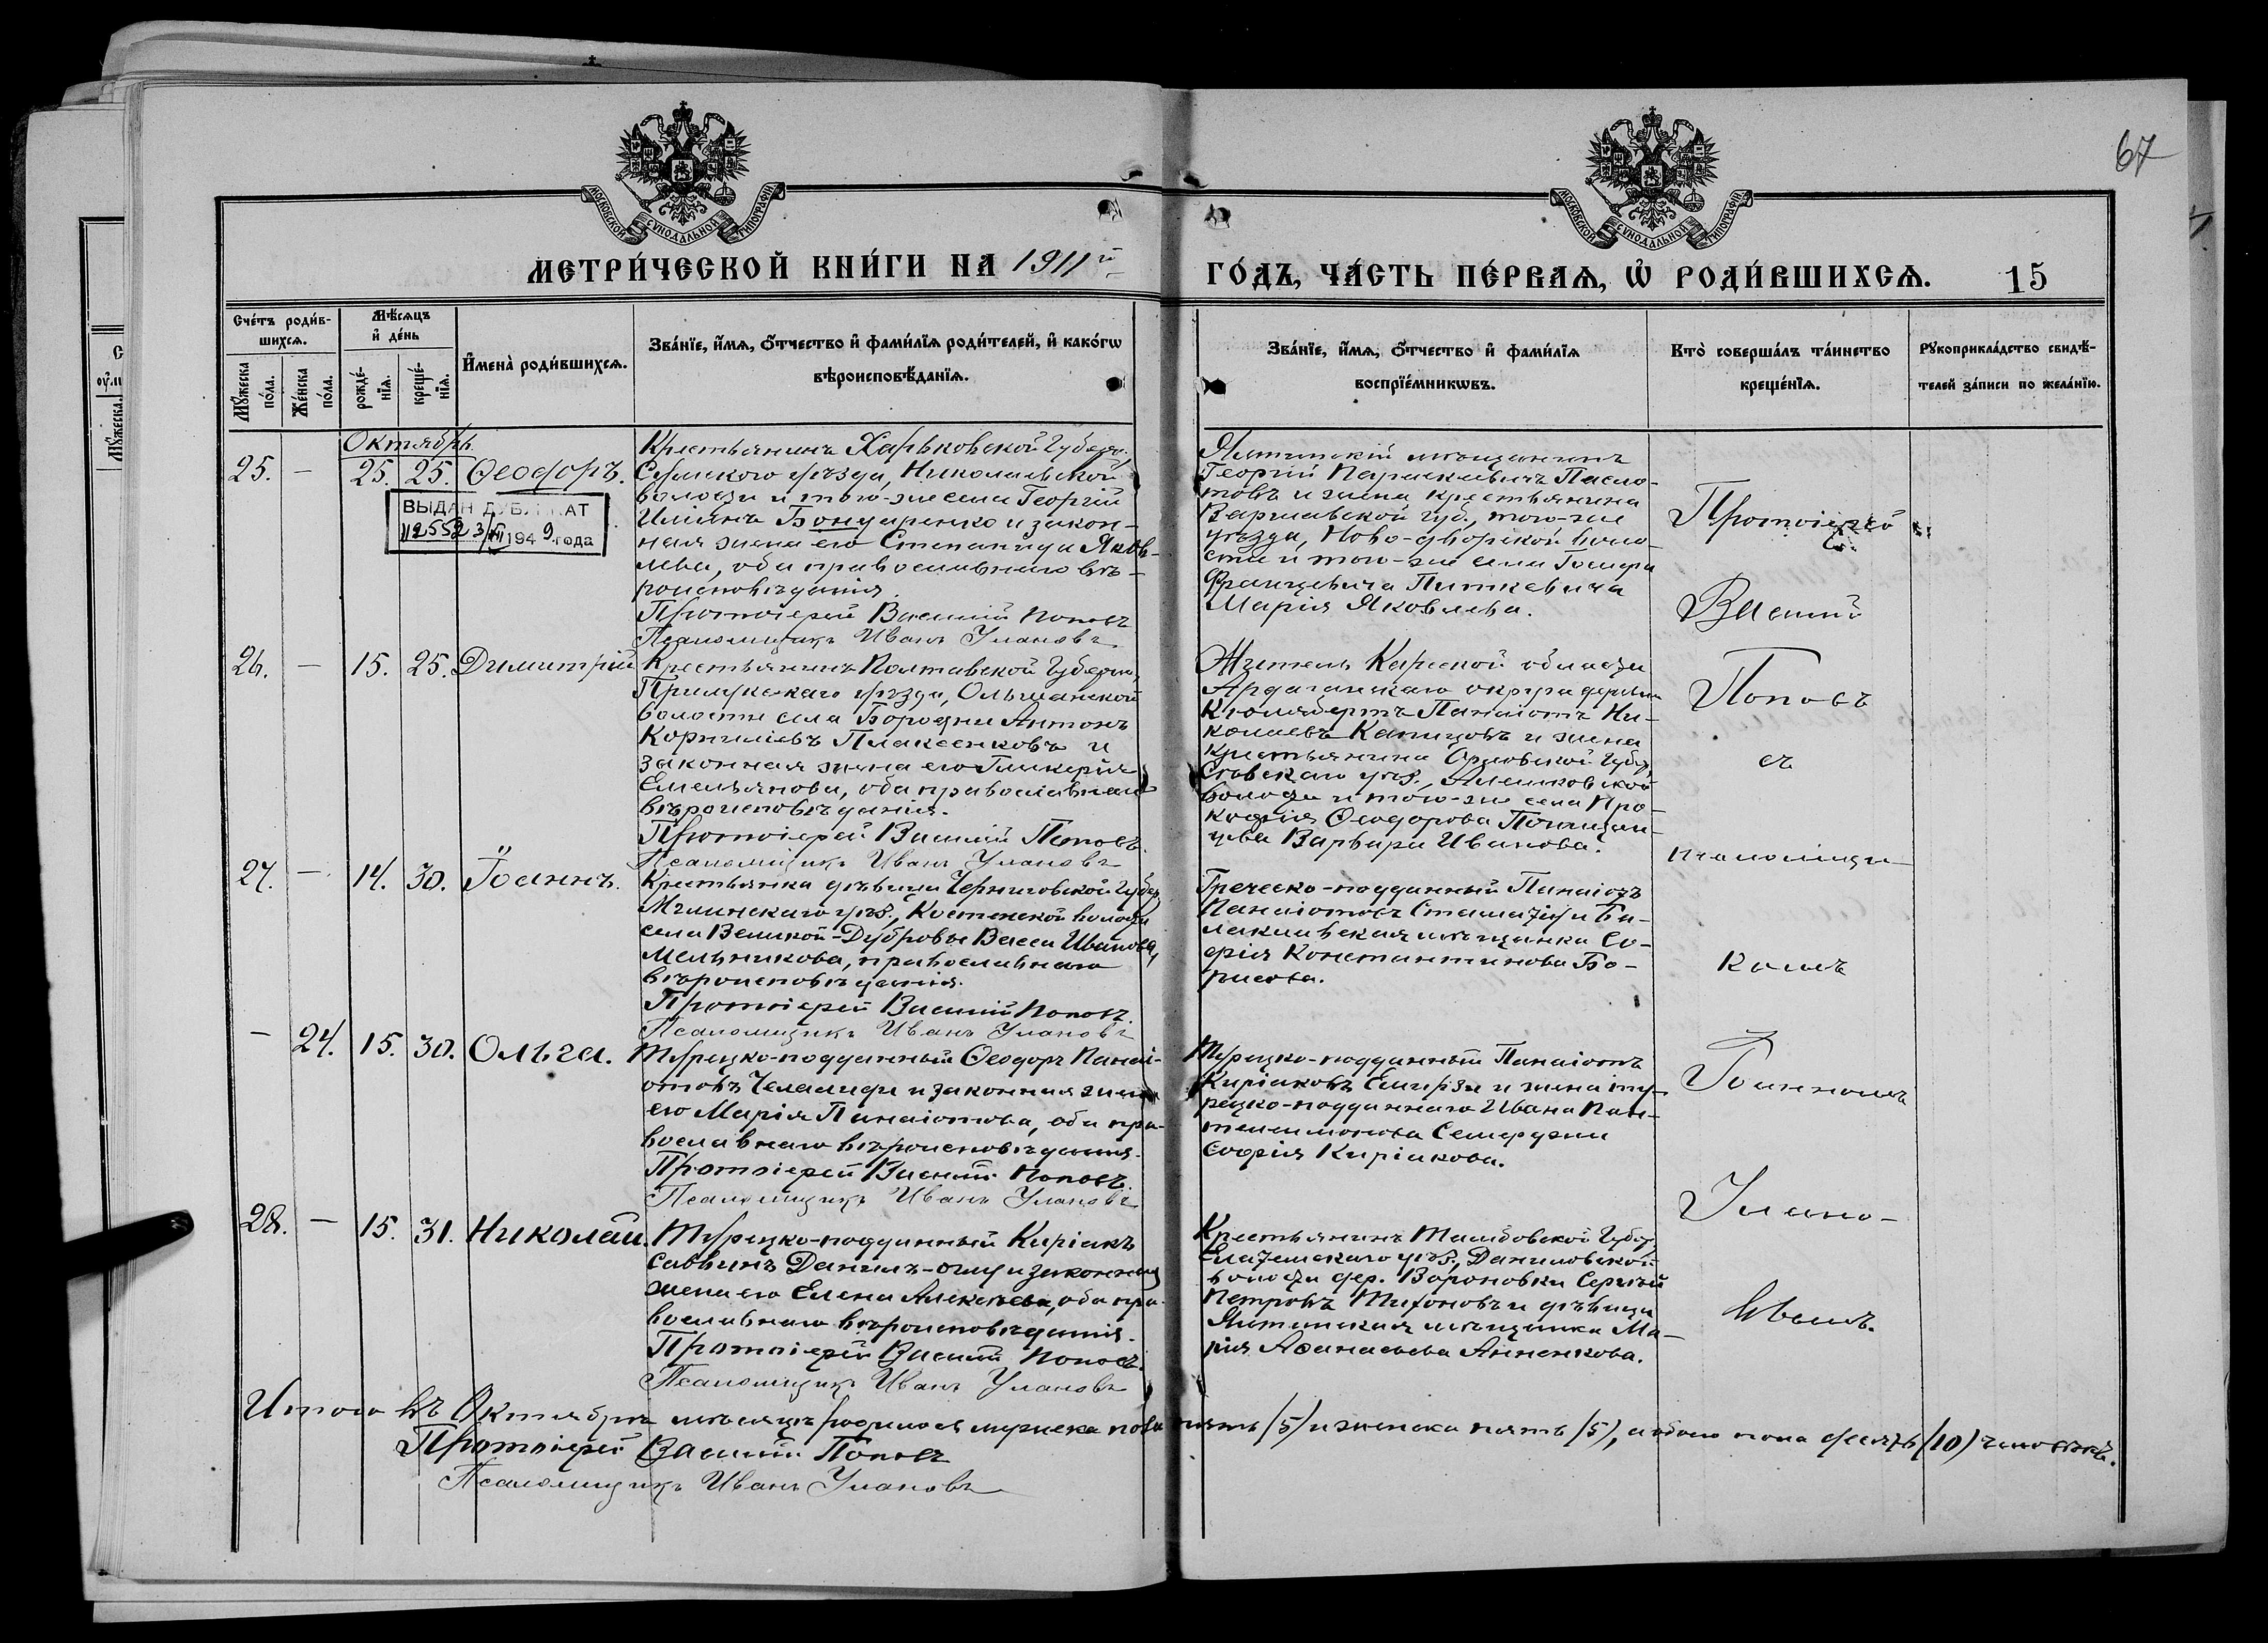 67
МОСКОВСКОЙ СѴНОДАЛЬНОЙ ТИПОГРАФІИ
МОСКОВСКОЙ СѴНОДАЛЬНОЙ ТИПОГРАФІИ
МЕТРИ́ЧЕСКОЙ КНИ́ГИ НА 1911й
ГО́ДЪ, ЧА́СТЬ ПЕ́РВАѦ, Ѡ҆ РОДИ́ВШИХСѦ. 15
Сче́тъ роди́в-
шихсѧ.
Мꙋ́жеска по́ла.
Же́нска по́ла.
Мѣ́сѧцъ
и҆ де́нь
рожде́-
нїѧ.
креще́-
нїѧ.
И҆мена̀ роди́вшихсѧ.
Зва́нїе, и҆́мѧ, ѻ҆́тчество и҆ фами́лїѧ роди́телей, и҆ како́гѡ
вѣроисповѣ́данїѧ.
Зва́нїе, и҆́мѧ, ѻ҆́тчество и҆ фами́лїѧ
воспрїе́мникѡвъ.
Кто̀ соверша́лъ та́инство
креще́нїѧ.
Рꙋкоприкла́дство свидѣ́-
телей за́писи по жела́нїю.
Октябрь
25. — 25. 25. Ѳеодоръ.
ВЫДАН ДУБЛИКАТ
112552 3/VII 1949 года
Крестьянинъ Харьковской Губерн.,
Сумского уѣзда, Николаевской
волости и того-же села Георгій
Иліинъ Бондаренко и закон-
ная жена его Степанида Яков-
лева, оба православнаго вѣ-
роисповѣданія.
Протоіерей Василій Поповъ
Псаломщикъ Иванъ Улановъ
Ялтинскій мѣщанинъ
Георгій Параскевичъ Пасло-
товъ и жена крестьянина
Варшавской губ., того-же
уѣзда, Ново-дворской воло-
сти и того-же села
Францевича Питкевича
Марія Яковлева.
26. — 15. 25. Димитрій
Крестьянинъ Полтавской Губерніи,
Прилукскаго уѣзда, Ольшанской
волости села Бородни Антонъ
Корниліевъ Плаксенковъ и
законная жена его Гликерія
Емельянова, оба православнаго
вѣроисповѣданія.
Протоіерей Василій Поповъ.
Псаломщикъ Иванъ Улановъ
Житель Карсской области
Ардаганскаго округа деревни
Панаіотъ Ни-
колаевъ Капицовъ и жена
крестьянина Орловской Губ.,
Сѣвскаго уѣз., Алешковской
волости и того-же села Про-
кофія Ѳеодорова
Варвара Иванова.
27. — 14. 30. Іоаннъ.
Крестьянка дѣвица Черниговской Губер.
Мглинскаго уѣз., Костенской волости
села Великой-Дубровы Васса Иванова
Мельникова, православнаго
вѣроисповѣданія.
Протоіерей Василій Поповъ.
Псаломщикъ Иванъ Улановъ
Греческо-подданный Панаіотъ
Панаіотовъ Стамати и Ба-
лаклавская мѣщанка Со-
фія Константинова Бо-
рисова.
— 24. 15. 30. Ольга.
Турецко-подданный Ѳеодоръ Панаі-
отовъ Челалиди и законная жена
его Марія Панаіотова, оба пра-
вославнаго вѣроисповѣданія.
Протоіерей Василій Поповъ.
Псаломщикъ Иванъ Улановъ
Турецко-подданный Панаіотъ
Киріаковъ и жена ту-
рецко-подданнаго Ивана Пан-
телеимонова
Софія Киріакова.
28. — 15. 31. Николай.
Турецко-подданный Киріакъ
Саввинъ Данилъ-оглу и законная
жена его Елена Алексѣева, оба пра-
вославнаго вѣроисповѣданія.
Протоіерей Василій Поповъ.
Псаломщикъ Иванъ Улановъ
Крестьянинъ Тамбовской Губер.
Елатомскаго уѣз., Даниловской
волости дер. Вороновки Сергѣй
Петровъ Тихоновъ и дѣвица
Ялтинская мѣщанка Ма-
рія Аѳанасьева Анненкова.
Протоіерей
Василій
Поповъ
съ
псаломщи-
комъ
Іоанномъ
Улано-
вымъ.
Итого въ Октябрѣ мѣсяцѣ родилось мужеска пола пять (5) и женска пять (5), обоего пола десять (10) человѣкъ.
Протоіерей Василій Поповъ
Псаломщикъ Иванъ Улановъ